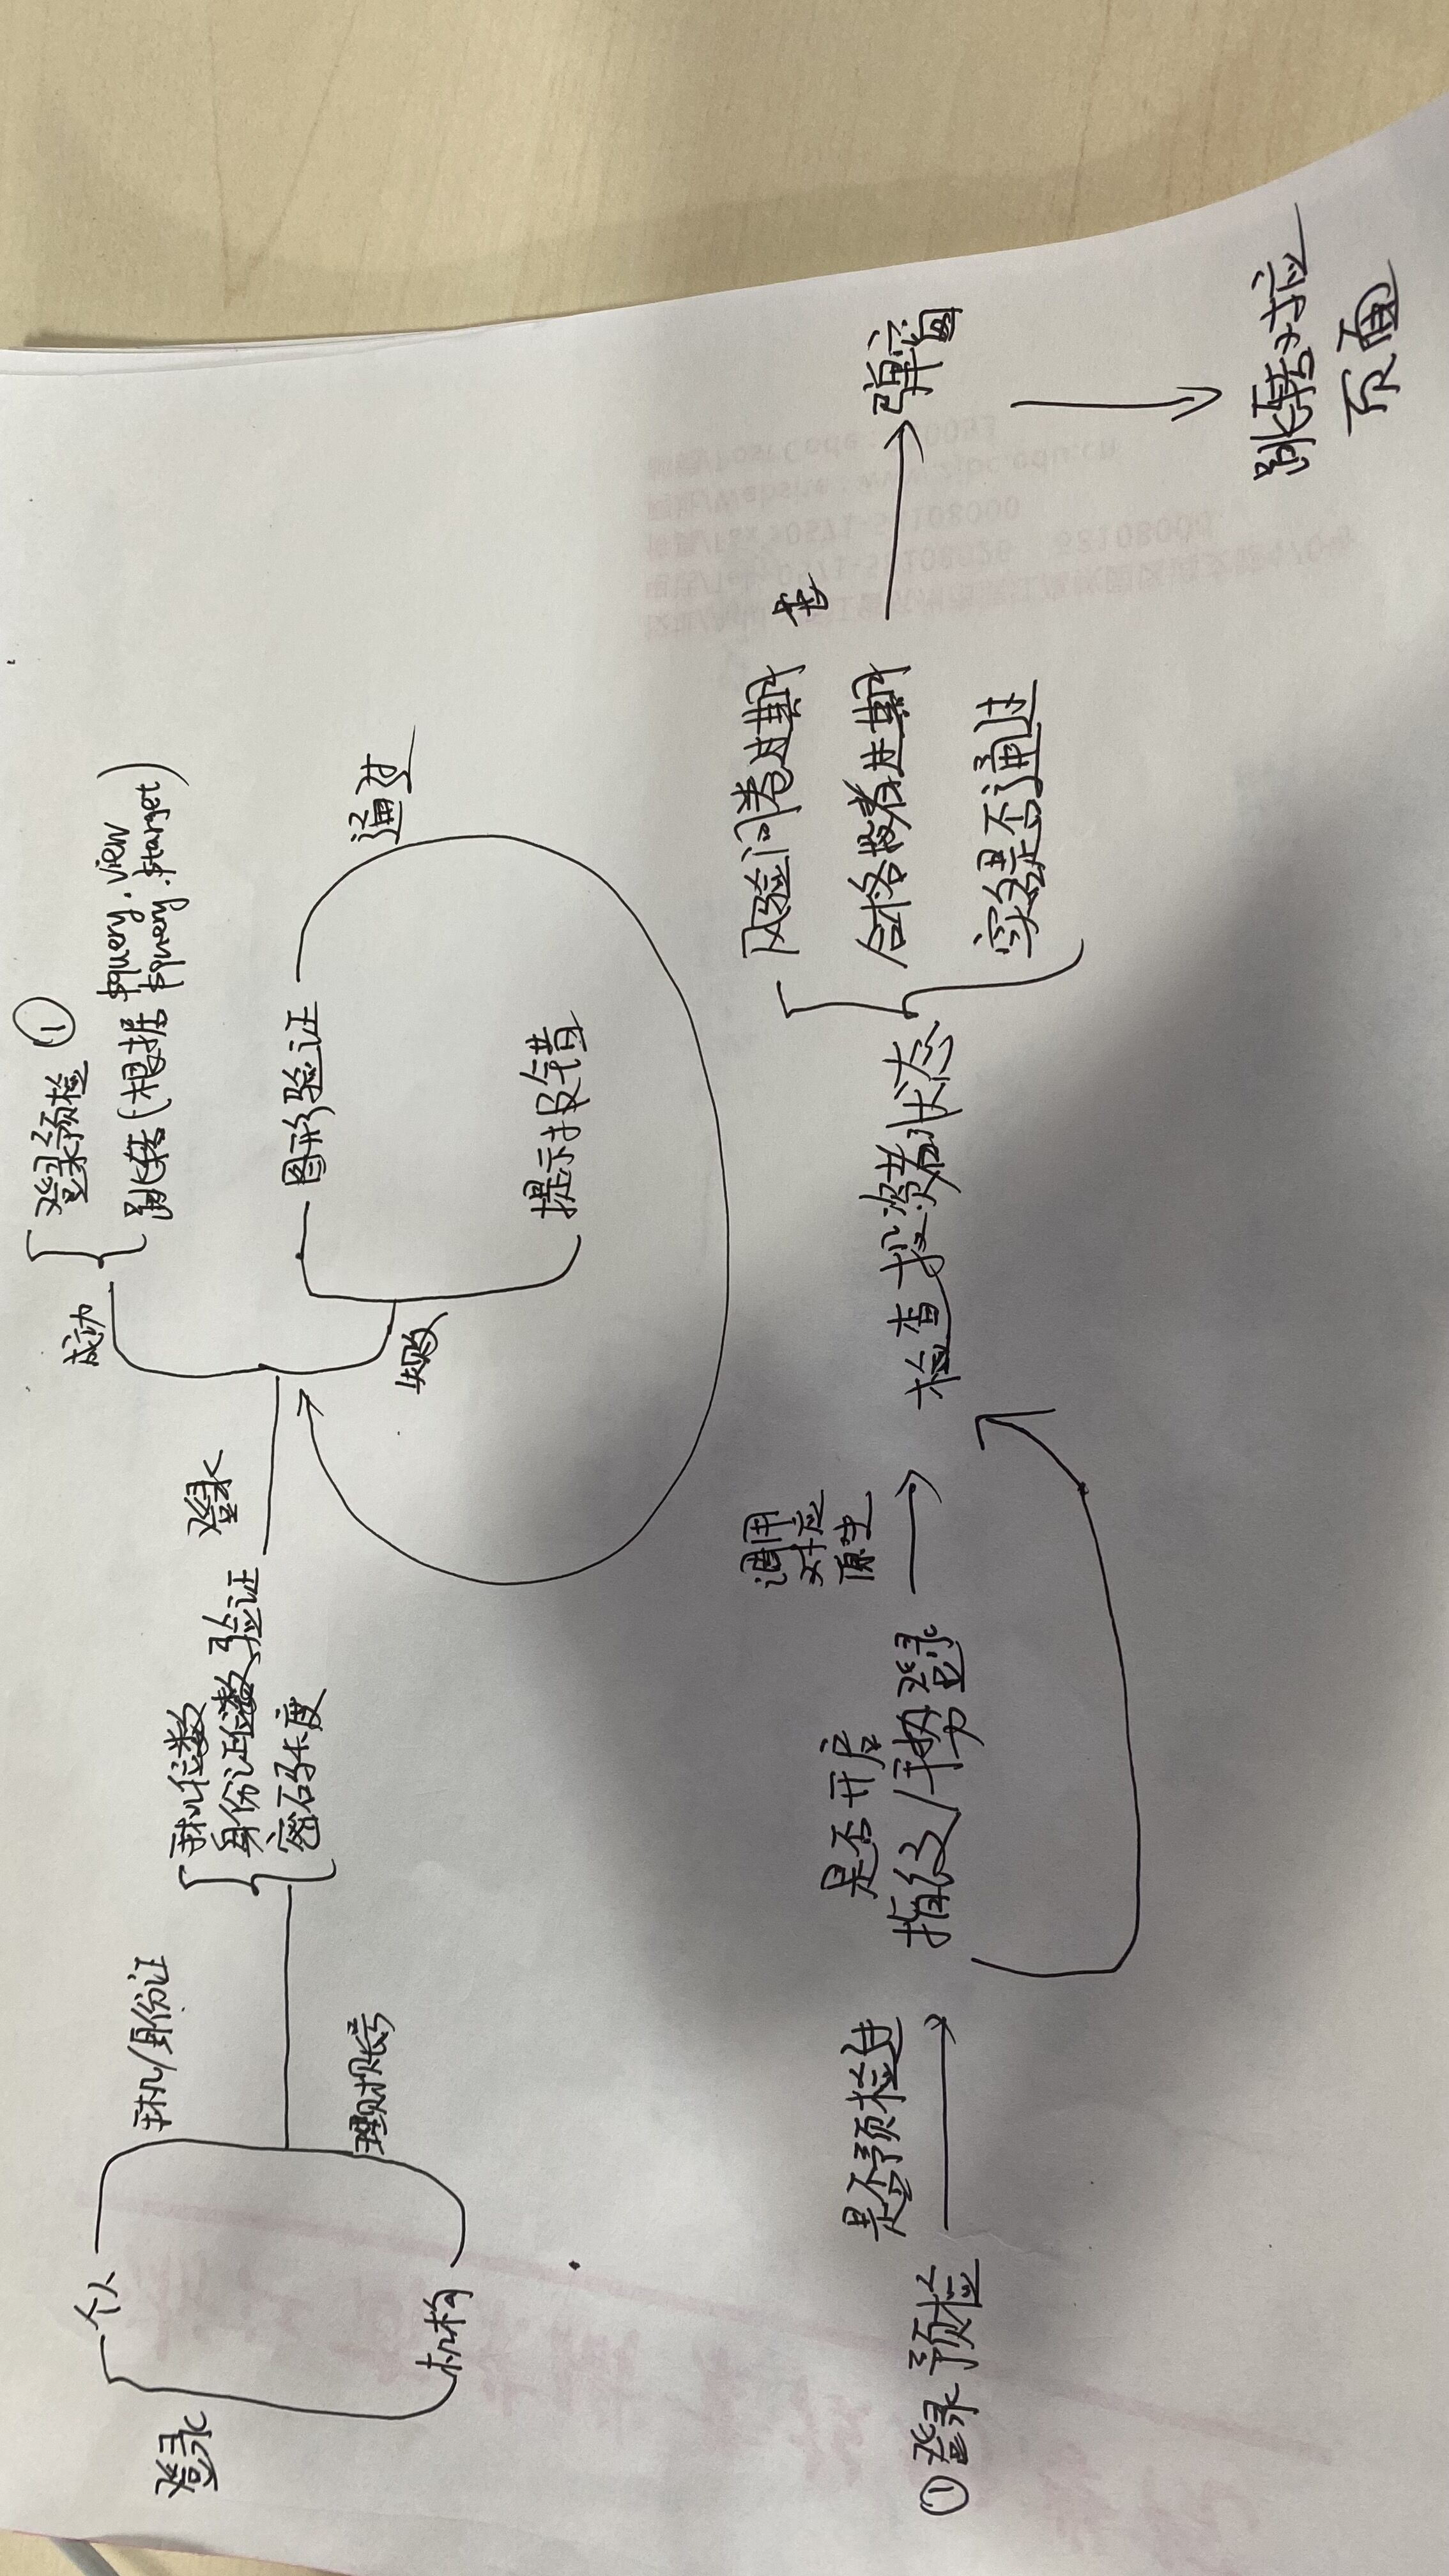 登录
个人
手机/身份证
理财账号
机构
手机位数
身份证位数验证
密码长度
登录
成功
登录预检 ①
跳转(根据 $query.view
$query.$target)
失败
图形验证
通过
提示报错
①登录预检
是否预检过
是否开启
指纹/手势登录
调用
对应
原生
检查投资者状态
风险问卷过期
合格投者过期
实名是否通过
弹窗
跳转对应
页面